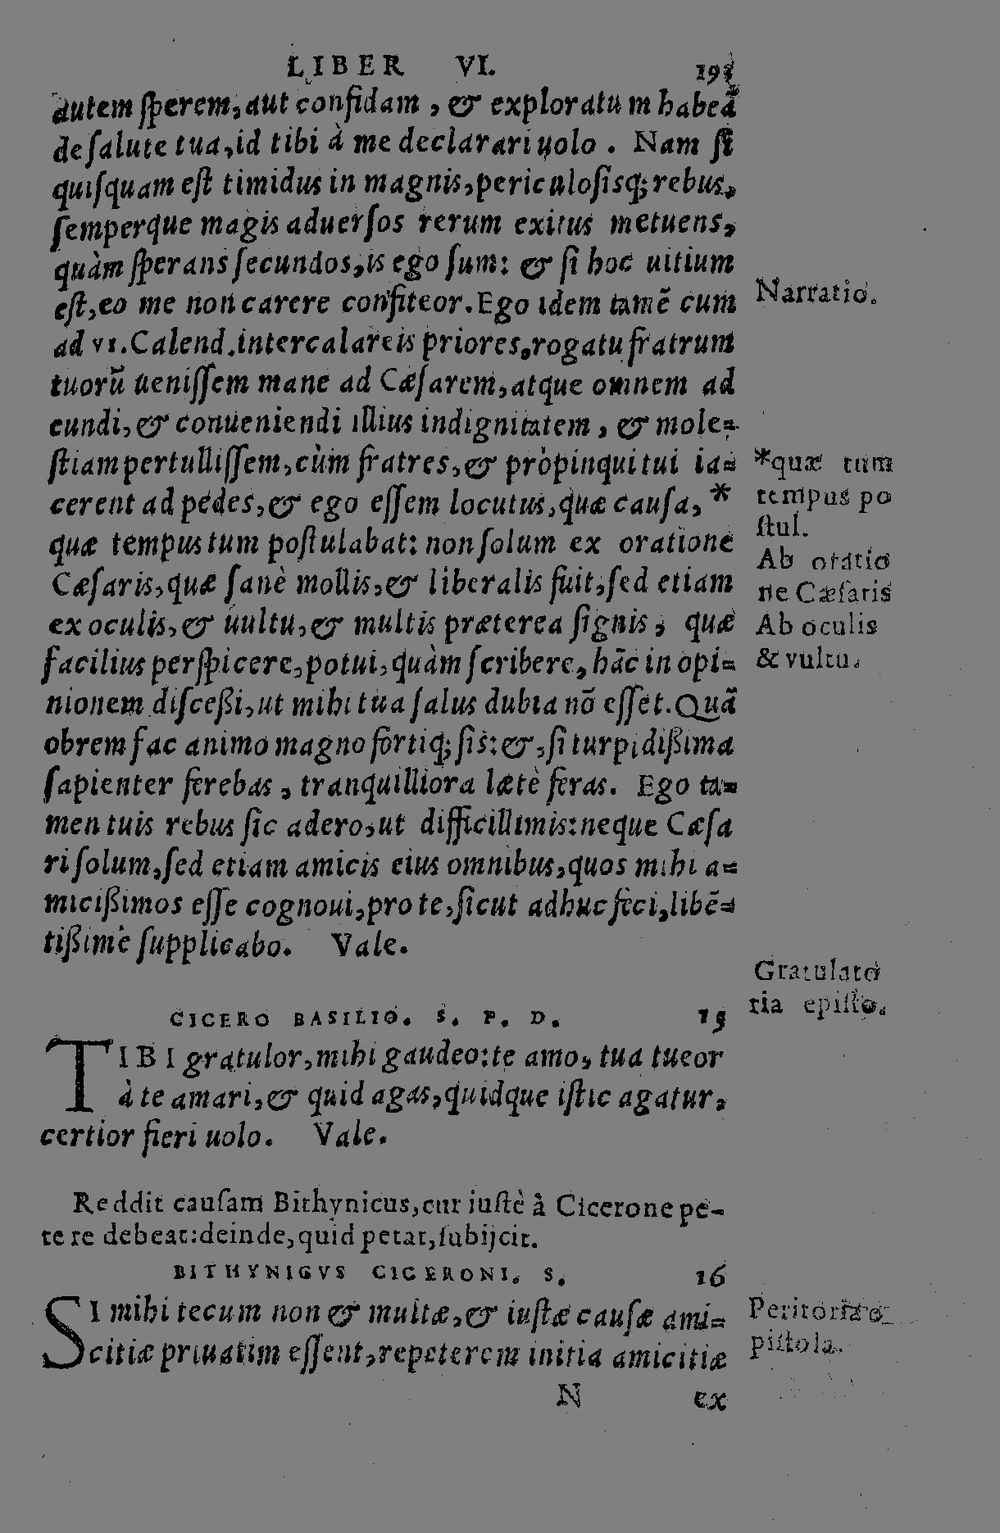 LIBER VI. 193
autem ſperem, aut confidam, & exploratum habeã
de ſalute tua, id tibi à me declarari uolo. Nam ſi
quiſquam eſt timidus in magnis, periculoſisq; rebus,
ſemperque magis aduerſos rerum exitus metuens,
quàm ſperans ſecundos, is ego ſum: & ſi hoc uitium
eſt, eo me non carere confiteor. Ego idem tamẽ cum
Narratio.
ad VI. Calend. intercalareis priores, rogatu fratrum
tuorũ ueniſſem mane ad Cæſarem, atque omnem ad
eundi, & conueniendi illius indignitatem, & mole=
ſtiam pertulliſſem, cùm fratres, & pròpinqui tui ia=
cerent ad pedes, & ego eſſem locutus, quæ cauſa, *
*quæ tum
tempus po
ſtul.
quæ tempus tum poſtulabat: non ſolum ex oratione
Ab oratio
ne Cæſaris
Cæſaris, quæ ſanè mollis, & liberalis fuit, ſed etiam
ex oculis, & uultu, & multis præterea ſignis, quæ
Ab oculis
& vultu.
facilius perſpicere, potui, quàm ſcribere, hãc in opi=
nionem diſceßi, ut mihi tua ſalus dubia nõ eſſet. Quã
obrem fac animo magno fortiq; ſis: &, ſi turpidißima
ſapienter ferebas, tranquilliora lætè feras. Ego ta=
men tuis rebus ſic adero, ut difficillimis: neque Cæſa
ri ſolum, ſed etiam amicis eius omnibus, quos mihi a=
micißimos eſſe cognoui, pro te, ſicut adhuc feci, libẽ=
tißimè ſupplicabo. Vale.
Gratulato
ria epiſto.
CICERO BASILIO. S. P. D. 15
TIBI gratulor, mihi gaudeo: te amo, tua tueor
à te amari, & quid agas, quidque iſtic agatur,
certior fieri uolo. Vale.
Reddit cauſam Bithynicus, cur iuſtè à Cicerone pe-
tere debeat: deinde, quid petat, ſubijcit.
BITHYNICVS CICERONI. S. 16
SI mihi tecum non & multæ, & iuſtæ cauſæ ami=
citiæ priuatim eſſent, repeterem initia amicitiæ
Petitoria e
piſtola.
N ex